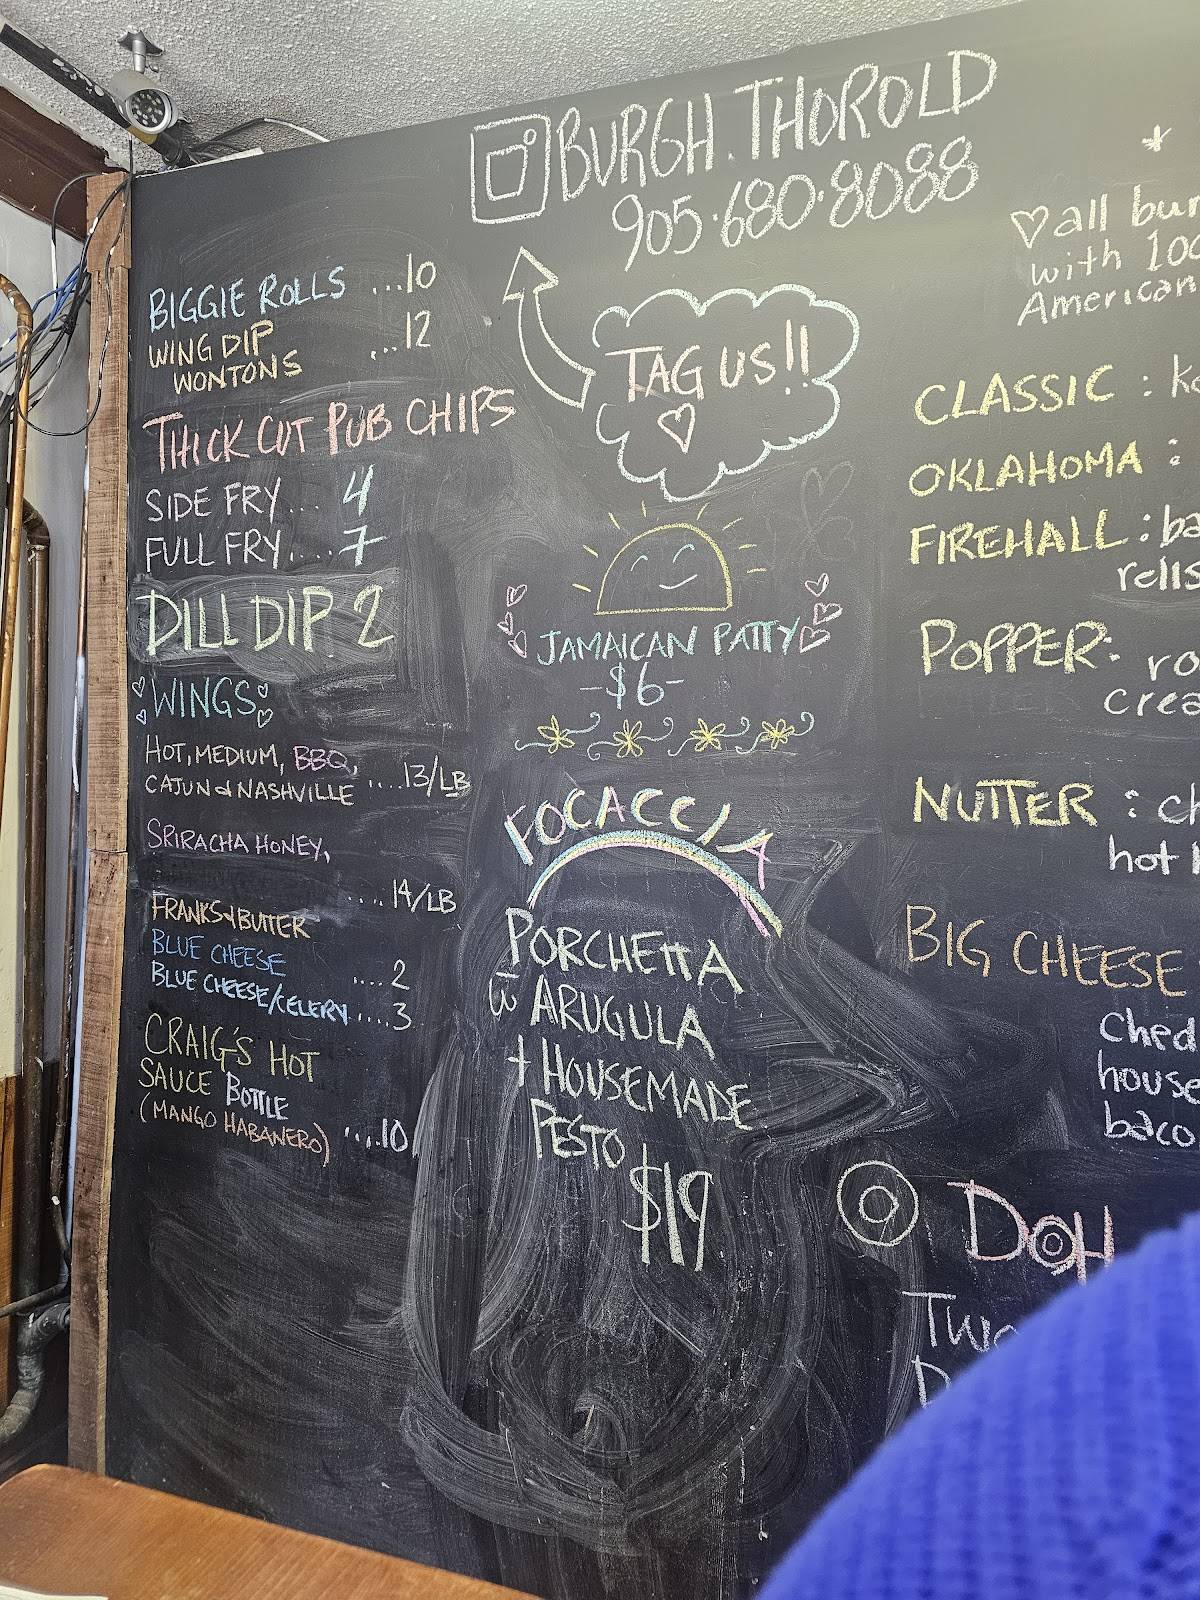 BURGH.THOROLD
905·680·8088
BIGGIE ROLLS ...10
WING DIP
WONTONS ...12
THICK CUT PUB CHIPS
SIDE FRY... 4
FULL FRY.... 7
DILL DIP 2
WINGS
HOT, MEDIUM, BBQ,
CAJUN & NASHVILLE ....13/LB
SRIRACHA HONEY,
....14/LB
FRANKS & BUTTER
BLUE CHEESE ....2
BLUE CHEESE/CELERY ....3
CRAIG'S HOT
SAUCE BOTTLE
(MANGO HABANERO) ....10
TAG US!!
JAMAICAN PATTY
-$6-
FOCACCIA
PORCHETTA
W ARUGULA
+ HOUSEMADE
PESTO
$19
*
all bur
with 100
American
CLASSIC :
OKLAHOMA :
FIREHALL : ba
relis
POPPER: ro
crea
NUTTER : ch
hot
BIG CHEESE
ched
house
baco
DOH